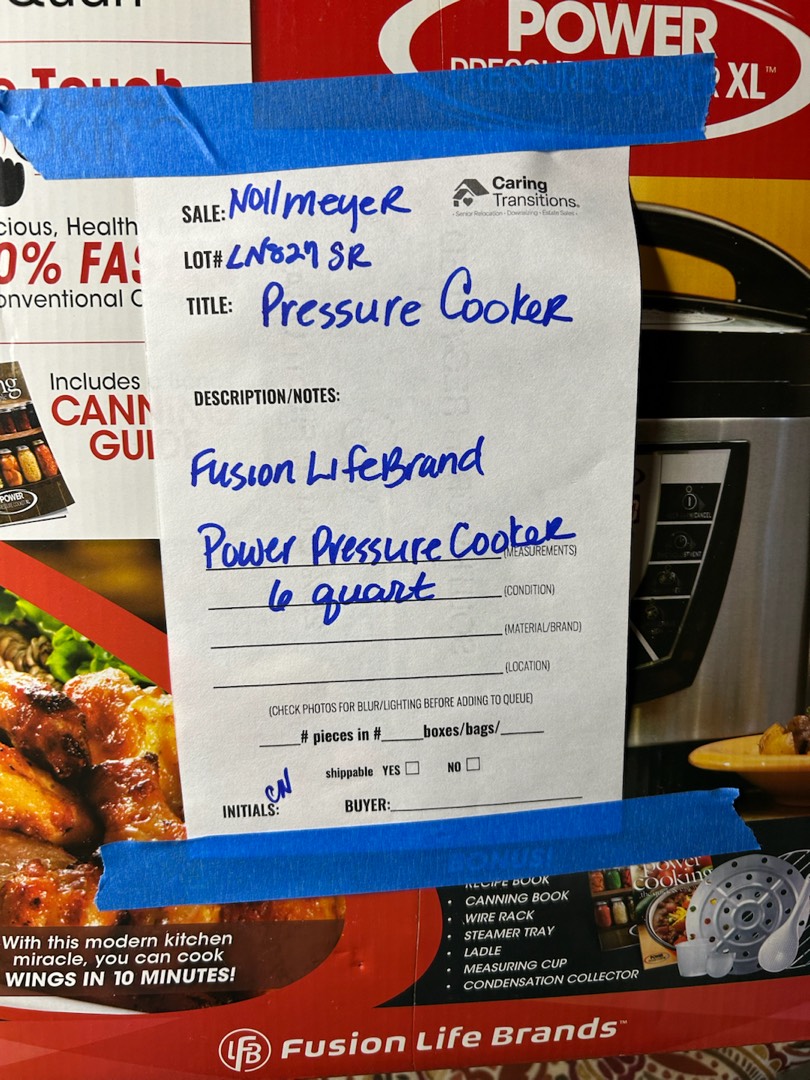 POWER
XL™
cious, Health
0% FAS
onventional C
Includes
CANN
GUI
POWER
SALE: Nollmeyer
Caring
Transitions.
Senior Relocation • Downsizing • Estate Sales
LOT# LN827 SR
TITLE: Pressure Cooker
DESCRIPTION/NOTES:
Fusion LifeBrand
Power Pressure Cooker
(MEASUREMENTS)
6 quart (CONDITION)
(MATERIAL/BRAND)
(LOCATION)
(CHECK PHOTOS FOR BLUR/LIGHTING BEFORE ADDING TO QUEUE)
____# pieces in #_____boxes/bags/_____
shippable YES NO
INITIALS: CN BUYER:
BONUS!
RECIPE BOOK
• CANNING BOOK
• WIRE RACK
• STEAMER TRAY
• LADLE
• MEASURING CUP
• CONDENSATION COLLECTOR
power
cooking
With this modern kitchen
miracle, you can cook
WINGS IN 10 MINUTES!
LFB Fusion Life Brands™